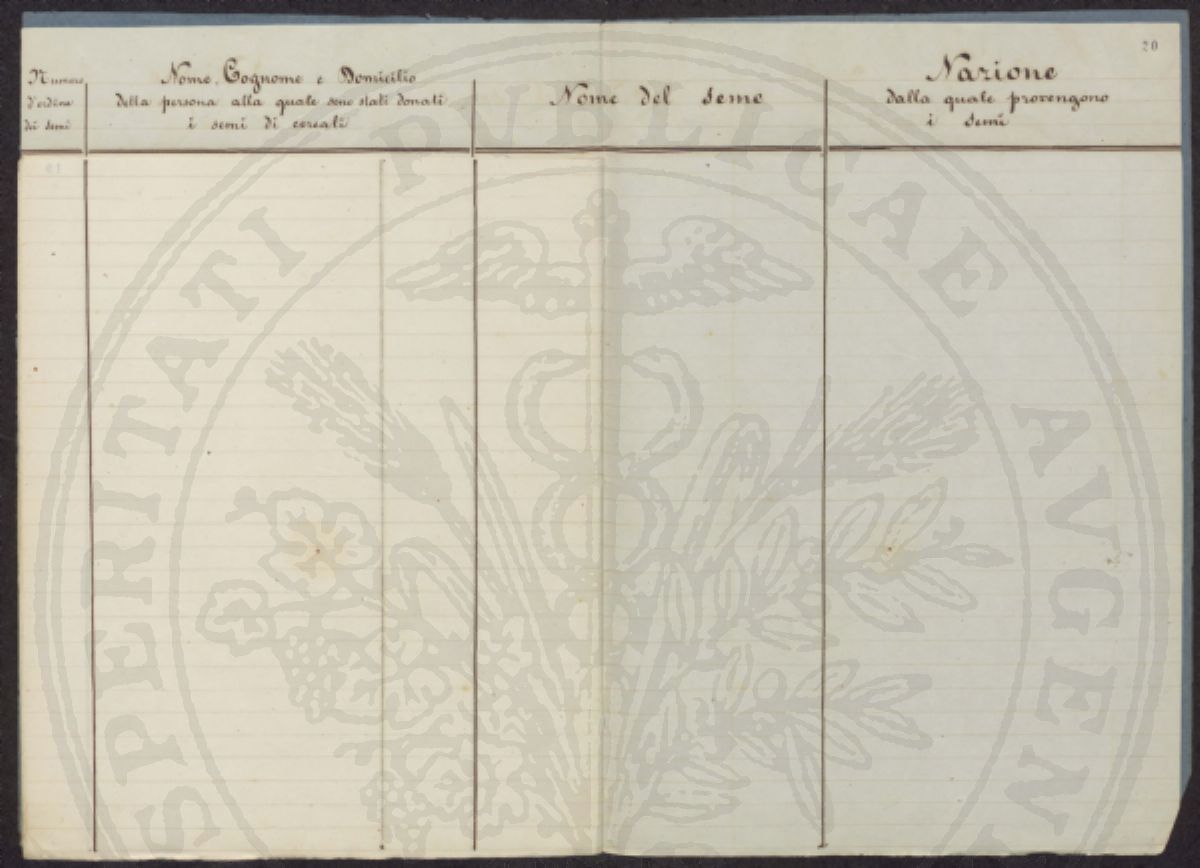 20
Numero
d'ordine
dei semi
Nome, Cognome e Domicilio
della persona alla quale sono stati donati
i semi di cereali
Nome del seme
Nazione
dalla quale provengono
i semi
19
SPERITATI PVBLICAE AVGEN